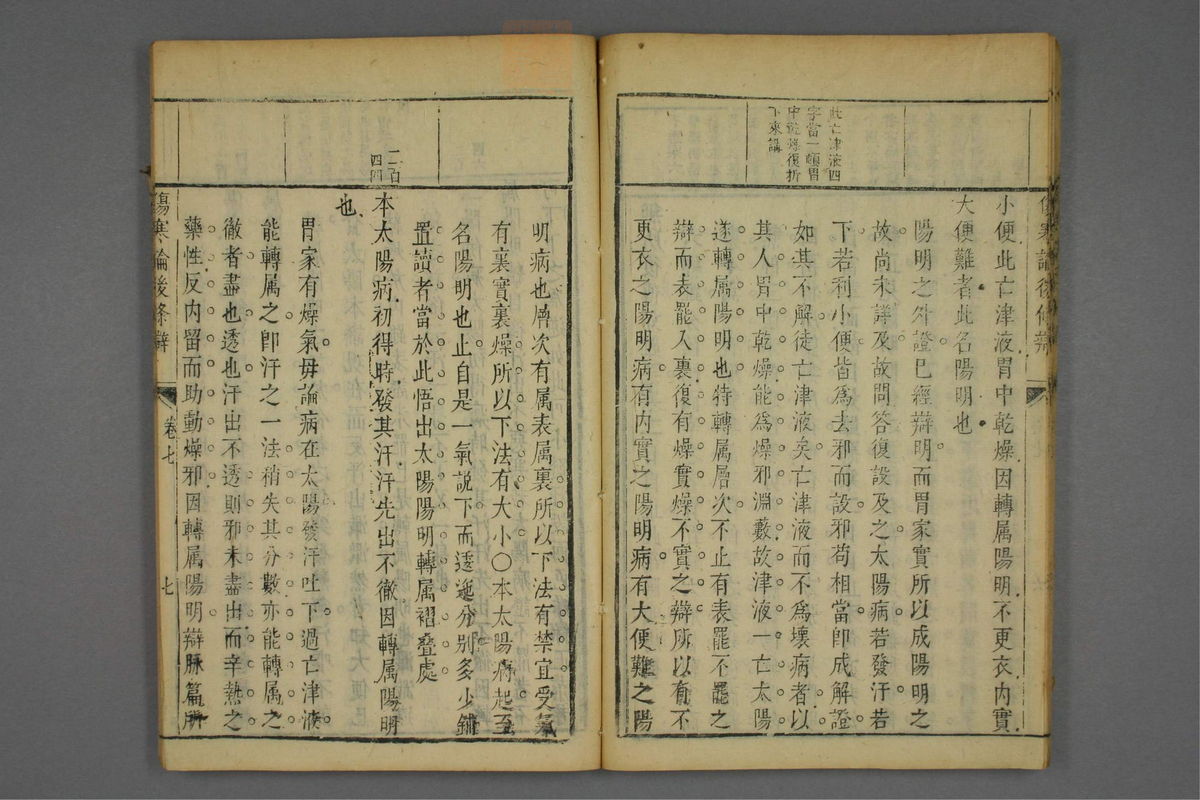 傷寒論後條辯
此亡津液四
字當一頓胃
中乾燥復折
下來講
小便此亡津液胃中乾燥因轉属陽明不更衣内實
大便難者此名陽明也
陽明之外證已經辯明而胃家實所以成陽明之
故尚未詳及故問答復設及之太陽病若發汗若
下若利小便皆爲去邪而設邪苟相當卽成解證
如其不解徒亡津液矣亡津液而不爲壞病者以
其人胃中乾燥能爲燥邪淵藪故津液一亡太陽
遂轉属陽明也特轉属層次不止有表罷不罷之
辯而表罷入裏復有燥實燥不實之辯所以有不
更衣之陽明病有内實之陽明病有大便難之陽
明病也層次有属表属裏所以下法有禁宜受氣
有裏實裏燥所以下法有大小○本太陽病起至
名陽明也止自是一氣説下而逶迤分別多少鋪
置讀者當於此悟出太陽陽明轉属褶疊處
二百
四四
本太陽病初得時發其汗汗先出不徹因轉属陽明
也
胃家有燥氣毋論病在太陽發汗吐下過亡津液
能轉属之卽汗之一法稍失其分數亦能轉属之
徹者盡也透也汗出不透則邪未盡出而辛熱之
藥性反内留而助動燥邪因轉属陽明辯脉篇所
傷寒論後條辯
卷七
七